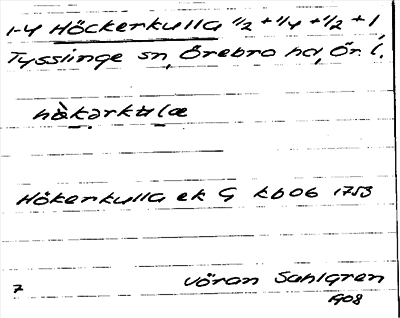 1-4 Höckerkulla 1/2 + 1/4 + 1/2 + 1,
Tysslinge sn, Örebro hd, Ör. l.
hὰkərkulæ
Hökerkulla ek G kb 06 1753
7 Jöran Sahlgren
1908